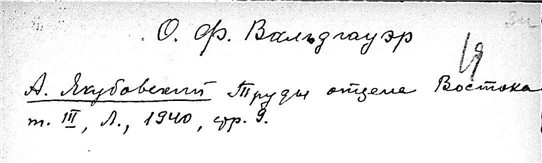 О. Ф. Вальдгауэр
А. Якубовский Труды отдела Востока
т. III, Л., 1940, стр. 9.